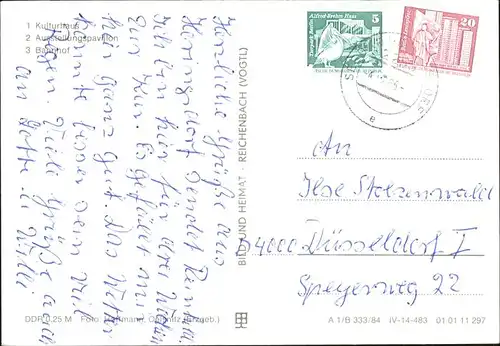 1 Kulturhaus
2 Ausstellungspavillon
3 Bahnhof
Herzliche Grüße aus
sendet
bin hier für drei Wochen
zur Kur. Es gefällt mir
hier ganz gut. Das Wetter
könnte besser sein viel
Regen. Viele Grüße
Lotte u. Willi
BILD UND HEIMAT · REICHENBACH (VOGTL)
Alfred-Brehm-Haus
5
20
An
Ilse Stolzenwald
D 4000 Düsseldorf 1
Speyerweg 22
DDR 0,25 M Foto: Hoffmann, Oelsnitz (Erzgeb.)
A 1/B 333/84 IV-14-483 01 01 11 297